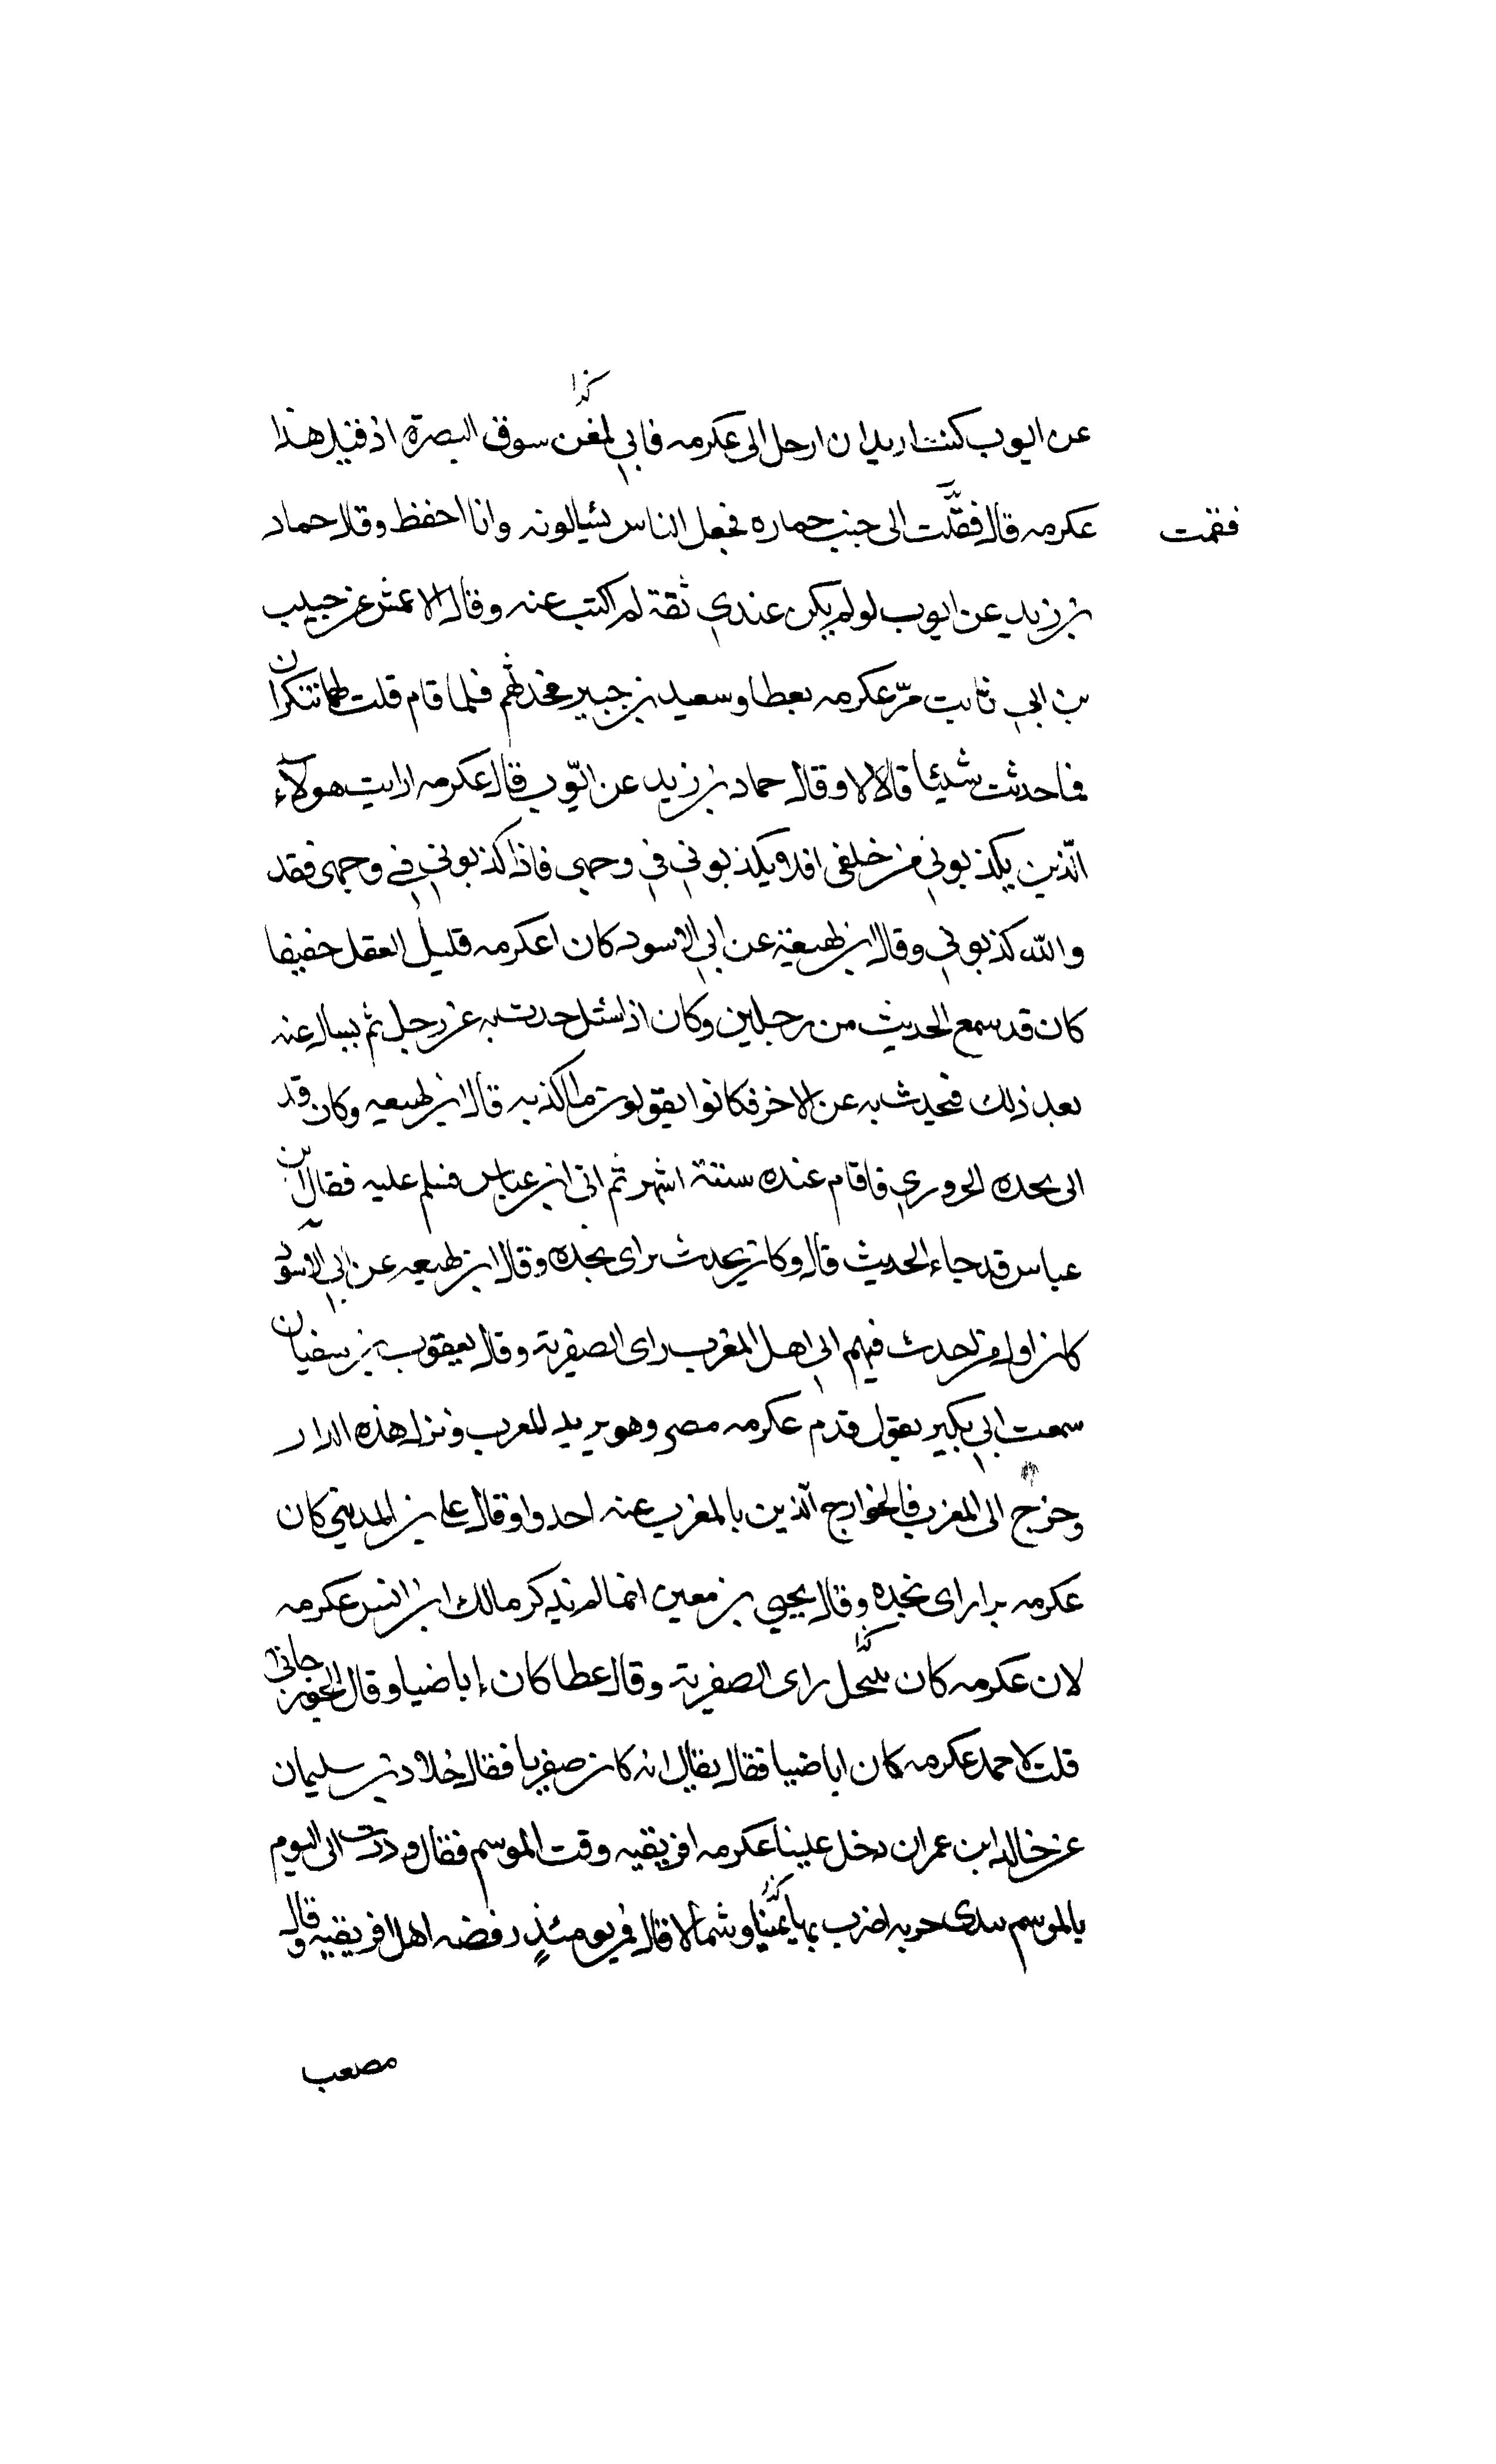 كذا
عن ايوب كنت اريد ان ارحل الى عكرمه فاني لمغن سوق البصرة اذ قيل هذا
عكرمه قال فقلت الى جنب حماره فجعل الناس يسألونه وانا احفظ وقال حماد
فقمت
بن زيد عن ايوب لو لم يكن عندي ثقة لم اكتب عنه وقال الاعمش عن حبيب
بن ابي ثابت مرّ عكرمه بعطا وسعيد بن جبير فحدثهم فلما قام قلت لهما تنكران
مما حدث شيئا قالا لا وقال حماد بن زيد عن ايّوب قال عكرمه ارايت هولآء
الّذين يكذبوني من خلفي افلا يكذبوني في وجهي فاذا كذبوني في وجهي فقد
والله كذبوني وقال ابن لهيعة عن ابي الاسود كان عكرمه قليل العقل خفيفا
كان قد سمع الحديث من رجلين وكان اذا سئل حدث به عن رجل ثم يسال عنه
بعد ذلك فيحدث به عن الاخر فكانوا يقولون ما اكذبه قال ابن لهيعه وكان قد
الى نجده الحروري فاقام عنده ستة اشهر ثم اتى ابن عباس فسلم عليه فقال ابن
عباس قد جاء الحديث قال وكان يحدث براى نجده وقال ابن لهيعه عن ابي الاسود
كان اول من احدث فيهم اي اهل المغرب راى الصفرية وقال يعقوب بن سفيان
سمعت ابي بكير يقول قدم عكرمه مصر وهو يريد المغرب ونزل هذه الدار
وخرج الى المغرب فالخوارج الّذين بالمغرب عنه اخذوا وقال علي بن المديني كان
عكرمه يرا راى نجده وقال يحيى بن معين انما لم يذكر مالك ابن انس عكرمه
كذا
لان عكرمه كان ينتحل راى الصفرية وقال عطا كان إباضيا وقال الجوزجاني
قلت لاحمد عكرمه كان اباضيا فقال يقال انه كان صفريا فقال خلاد بن سليمان
عن خالد ابن عمران دخل علينا عكرمه افريقيه وقت الموسم فقال وددت اني اليوم
كذا
بالموسم بيدي حربه اضرب بها يمينا وشمالا قال فمن يومئذٍ رفضه اهل افريقيه وقال
مصعب